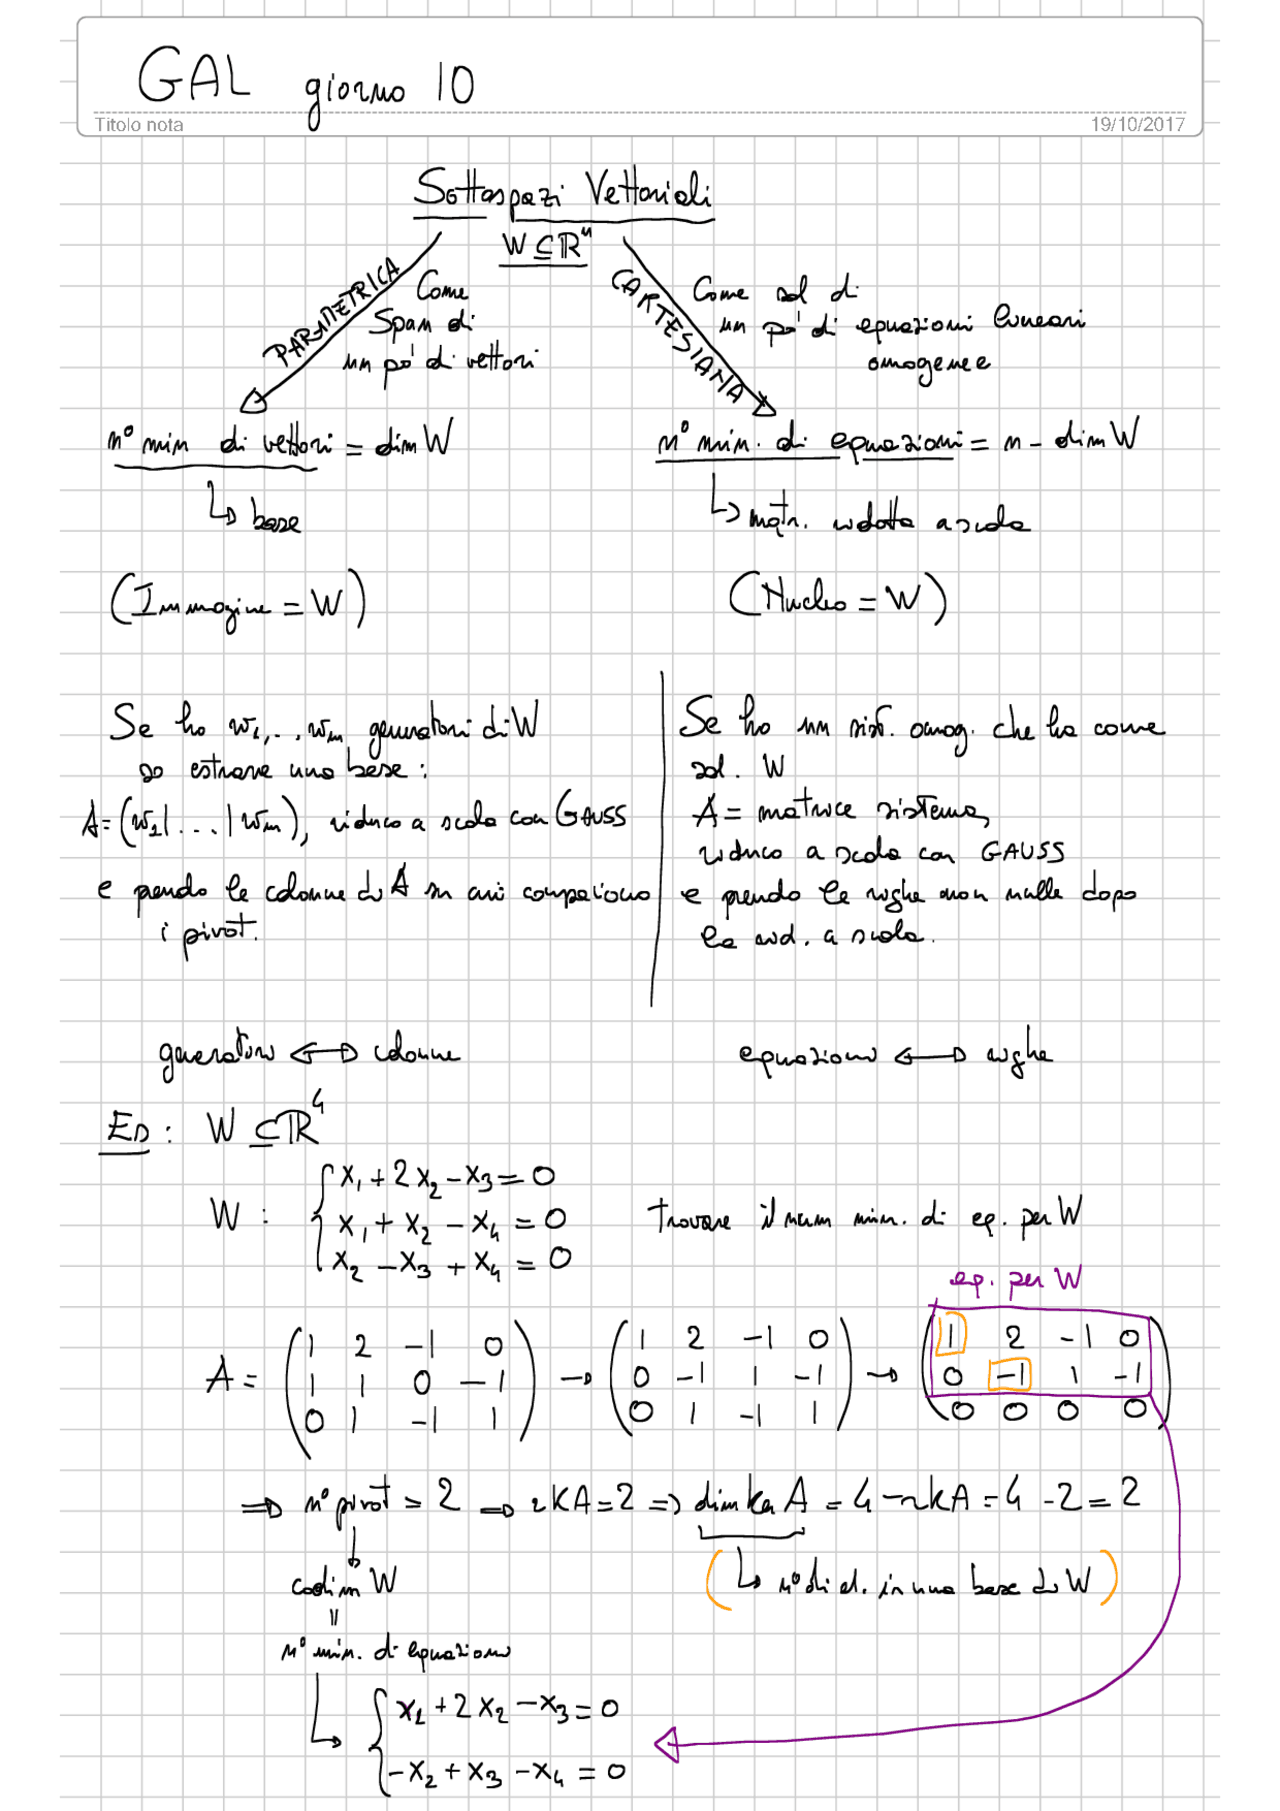 GAL giorno 10
Titolo nota
19/10/2017
Sottospazi Vettoriali
W ⊆ ℝⁿ
PARAMETRICA
Come
Span di
un pò di vettori
CARTESIANA
Come sol di
un pò di equazioni lineari
omogenee
n° min di vettori = dim W
↳ base
(Immagine = W)
n° min. di equazioni = n - dim W
↳ matr. ridotta a scala
(Nucleo = W)
Se ho w₁,..,wₘ generatori di W
so estrarre una base:
A = (w₁|...|wₘ), riduco a scala con GAUSS
e prendo le colonne di A in cui compaiono
i pivot.
Se ho un sist. omog. che ha come
sol. W
A = matrice sistema,
riduco a scala con GAUSS
e prendo le righe non nulle dopo
la rid. a scala.
generatori ↔ colonne
equazioni ↔ righe
Es: W ⊆ ℝ⁴
W: { x₁ + 2x₂ - x₃ = 0
x₁ + x₂ - x₄ = 0
x₂ - x₃ + x₄ = 0
trovare il num min. di eq. per W
eq. per W
A = (1 2 -1 0) → (1 2 -1 0) → (1 2 -1 0)
(1 1 0 -1) (0 -1 1 -1) (0 -1 1 -1)
(0 1 -1 1) (0 1 -1 1) (0 0 0 0)
⇒ n° pivot = 2 ⇒ rk A = 2 ⇒ dim ker A = 4 - rk A = 4 - 2 = 2
↓
codim W
(↳ n° di el. in una base di W)
=
n° min. di equazioni
↳ { x₁ + 2x₂ - x₃ = 0
-x₂ + x₃ - x₄ = 0